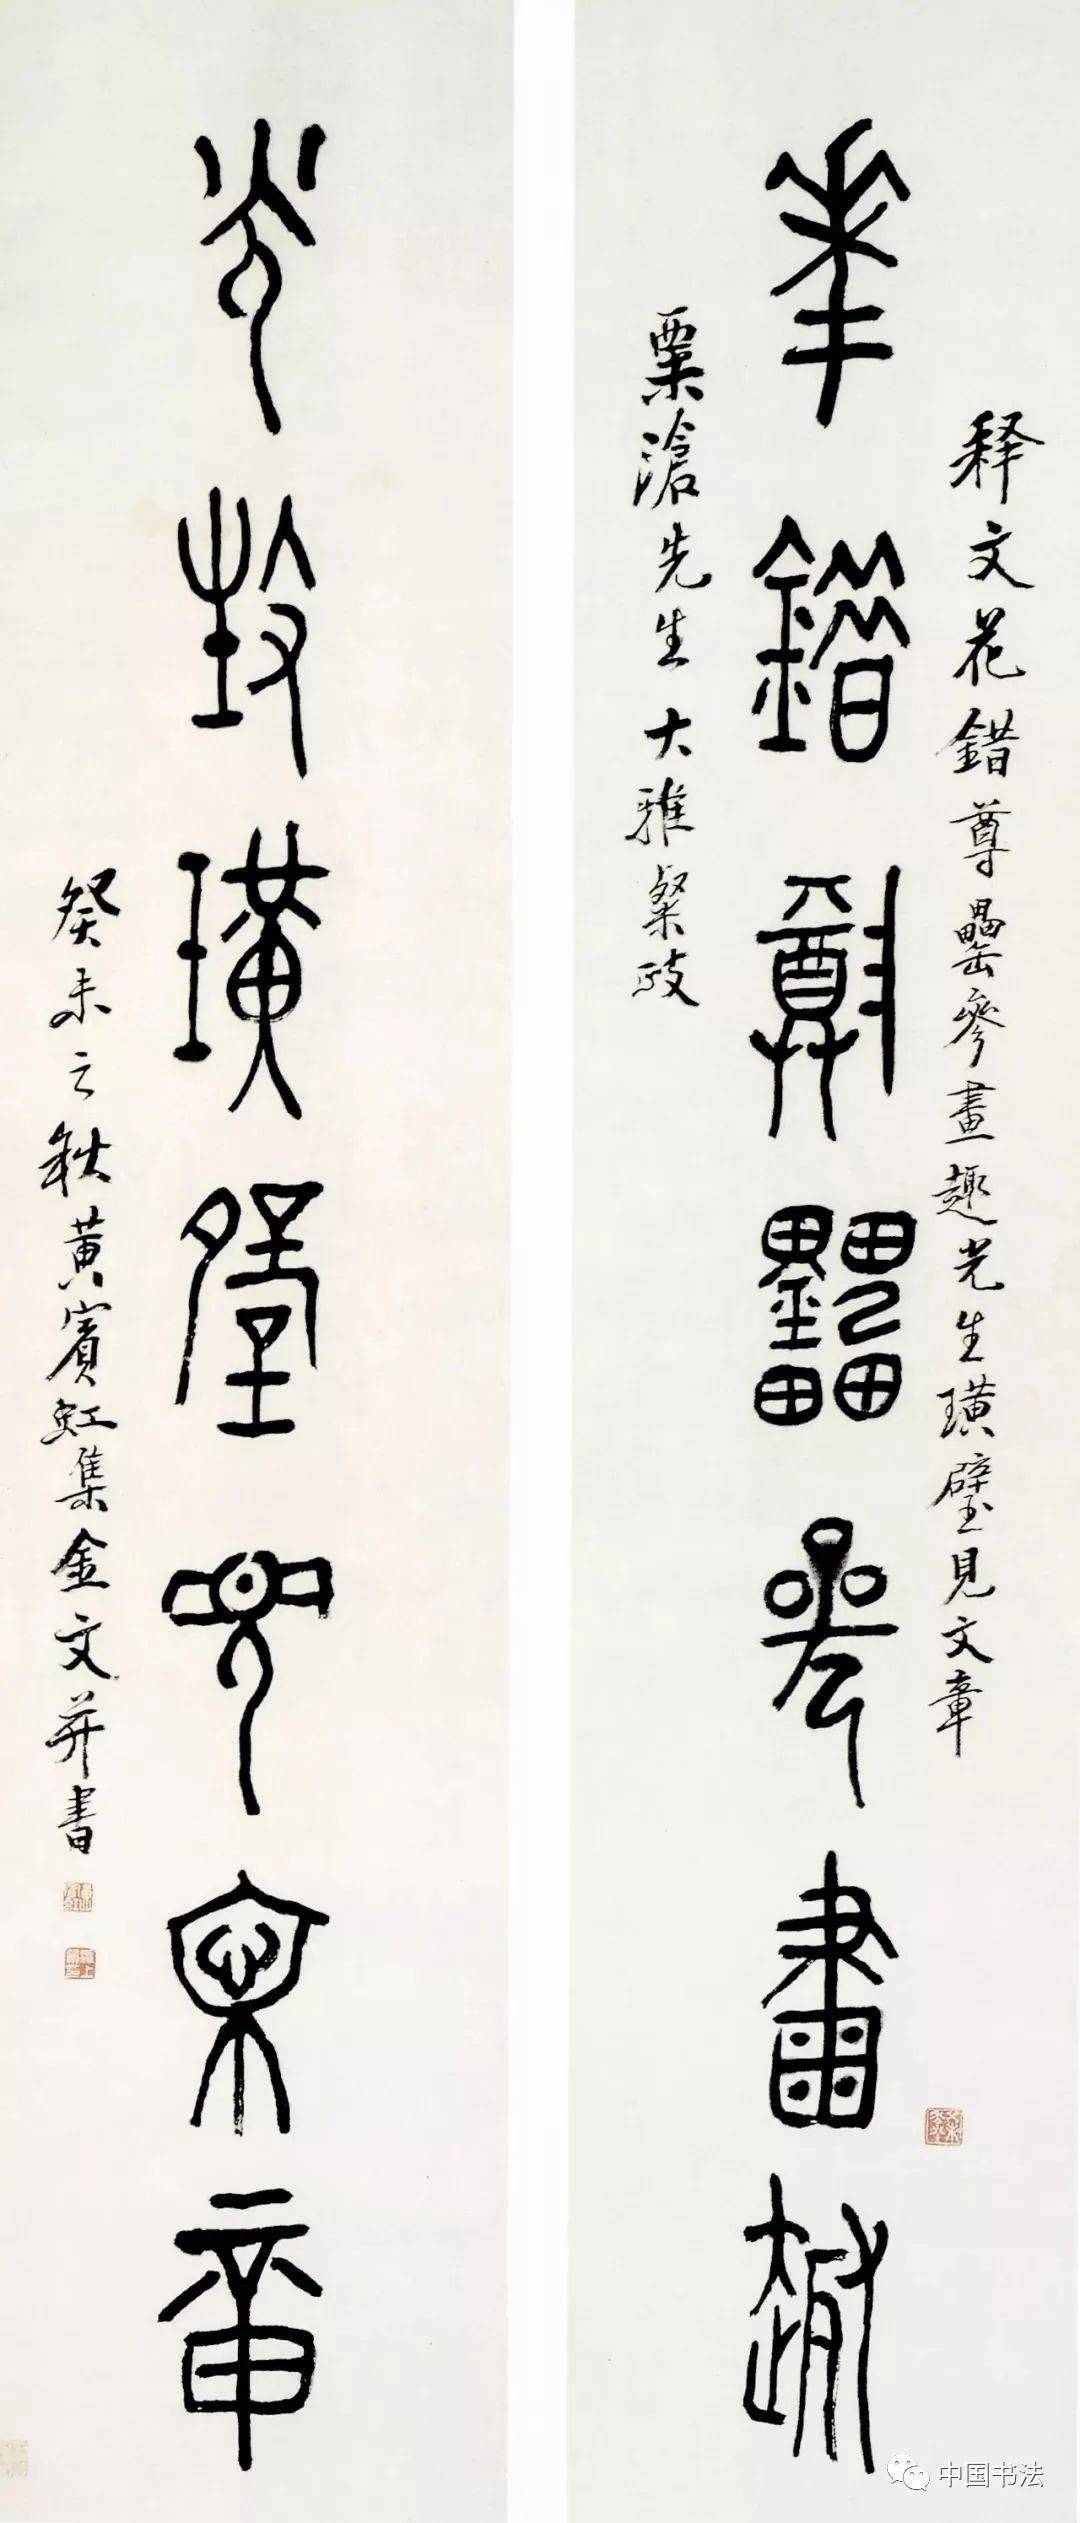 释文花錯尊罍參畫趣光生璜璧見文章
華錯尊罍參畫趣
粟滄先生大雅粲政
光生璜璧見文章
癸未之秋黃賓虹集金文并書
中国书法